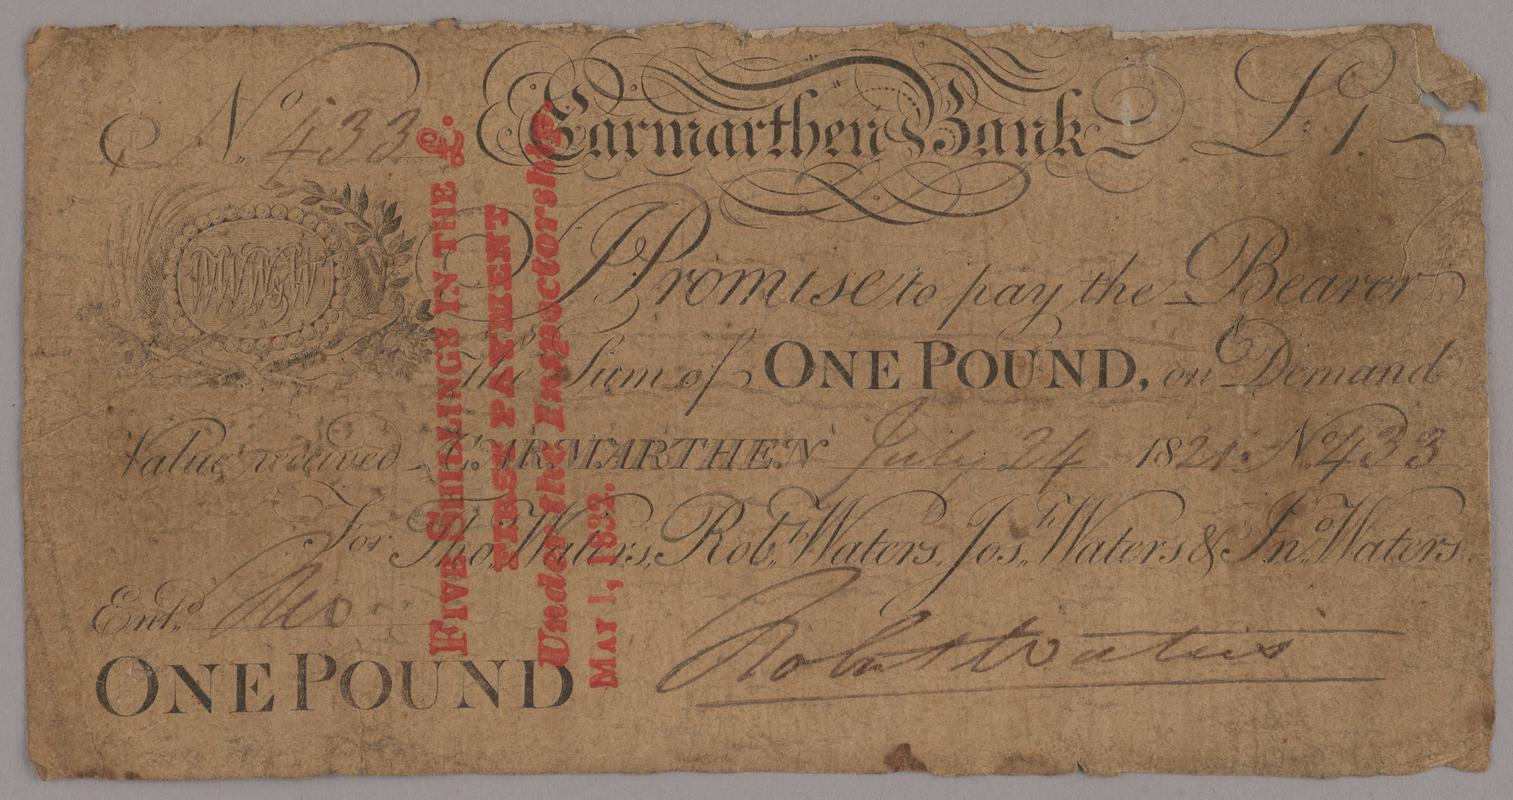 No. 433 Carmarthen Bank £1.
I Promise to pay the Bearer
the Sum of ONE POUND, on Demand
Value received CARMARTHEN July 24 1821. No. 433
For Thos. Waters, Robt. Waters, Josh. Waters & Jno. Waters.
Entd.
Robert Waters
ONE POUND
FIVE SHILLINGS IN THE £.
FIRST PAYMENT
Under the Inspectorship.
MAY 1, 1832.